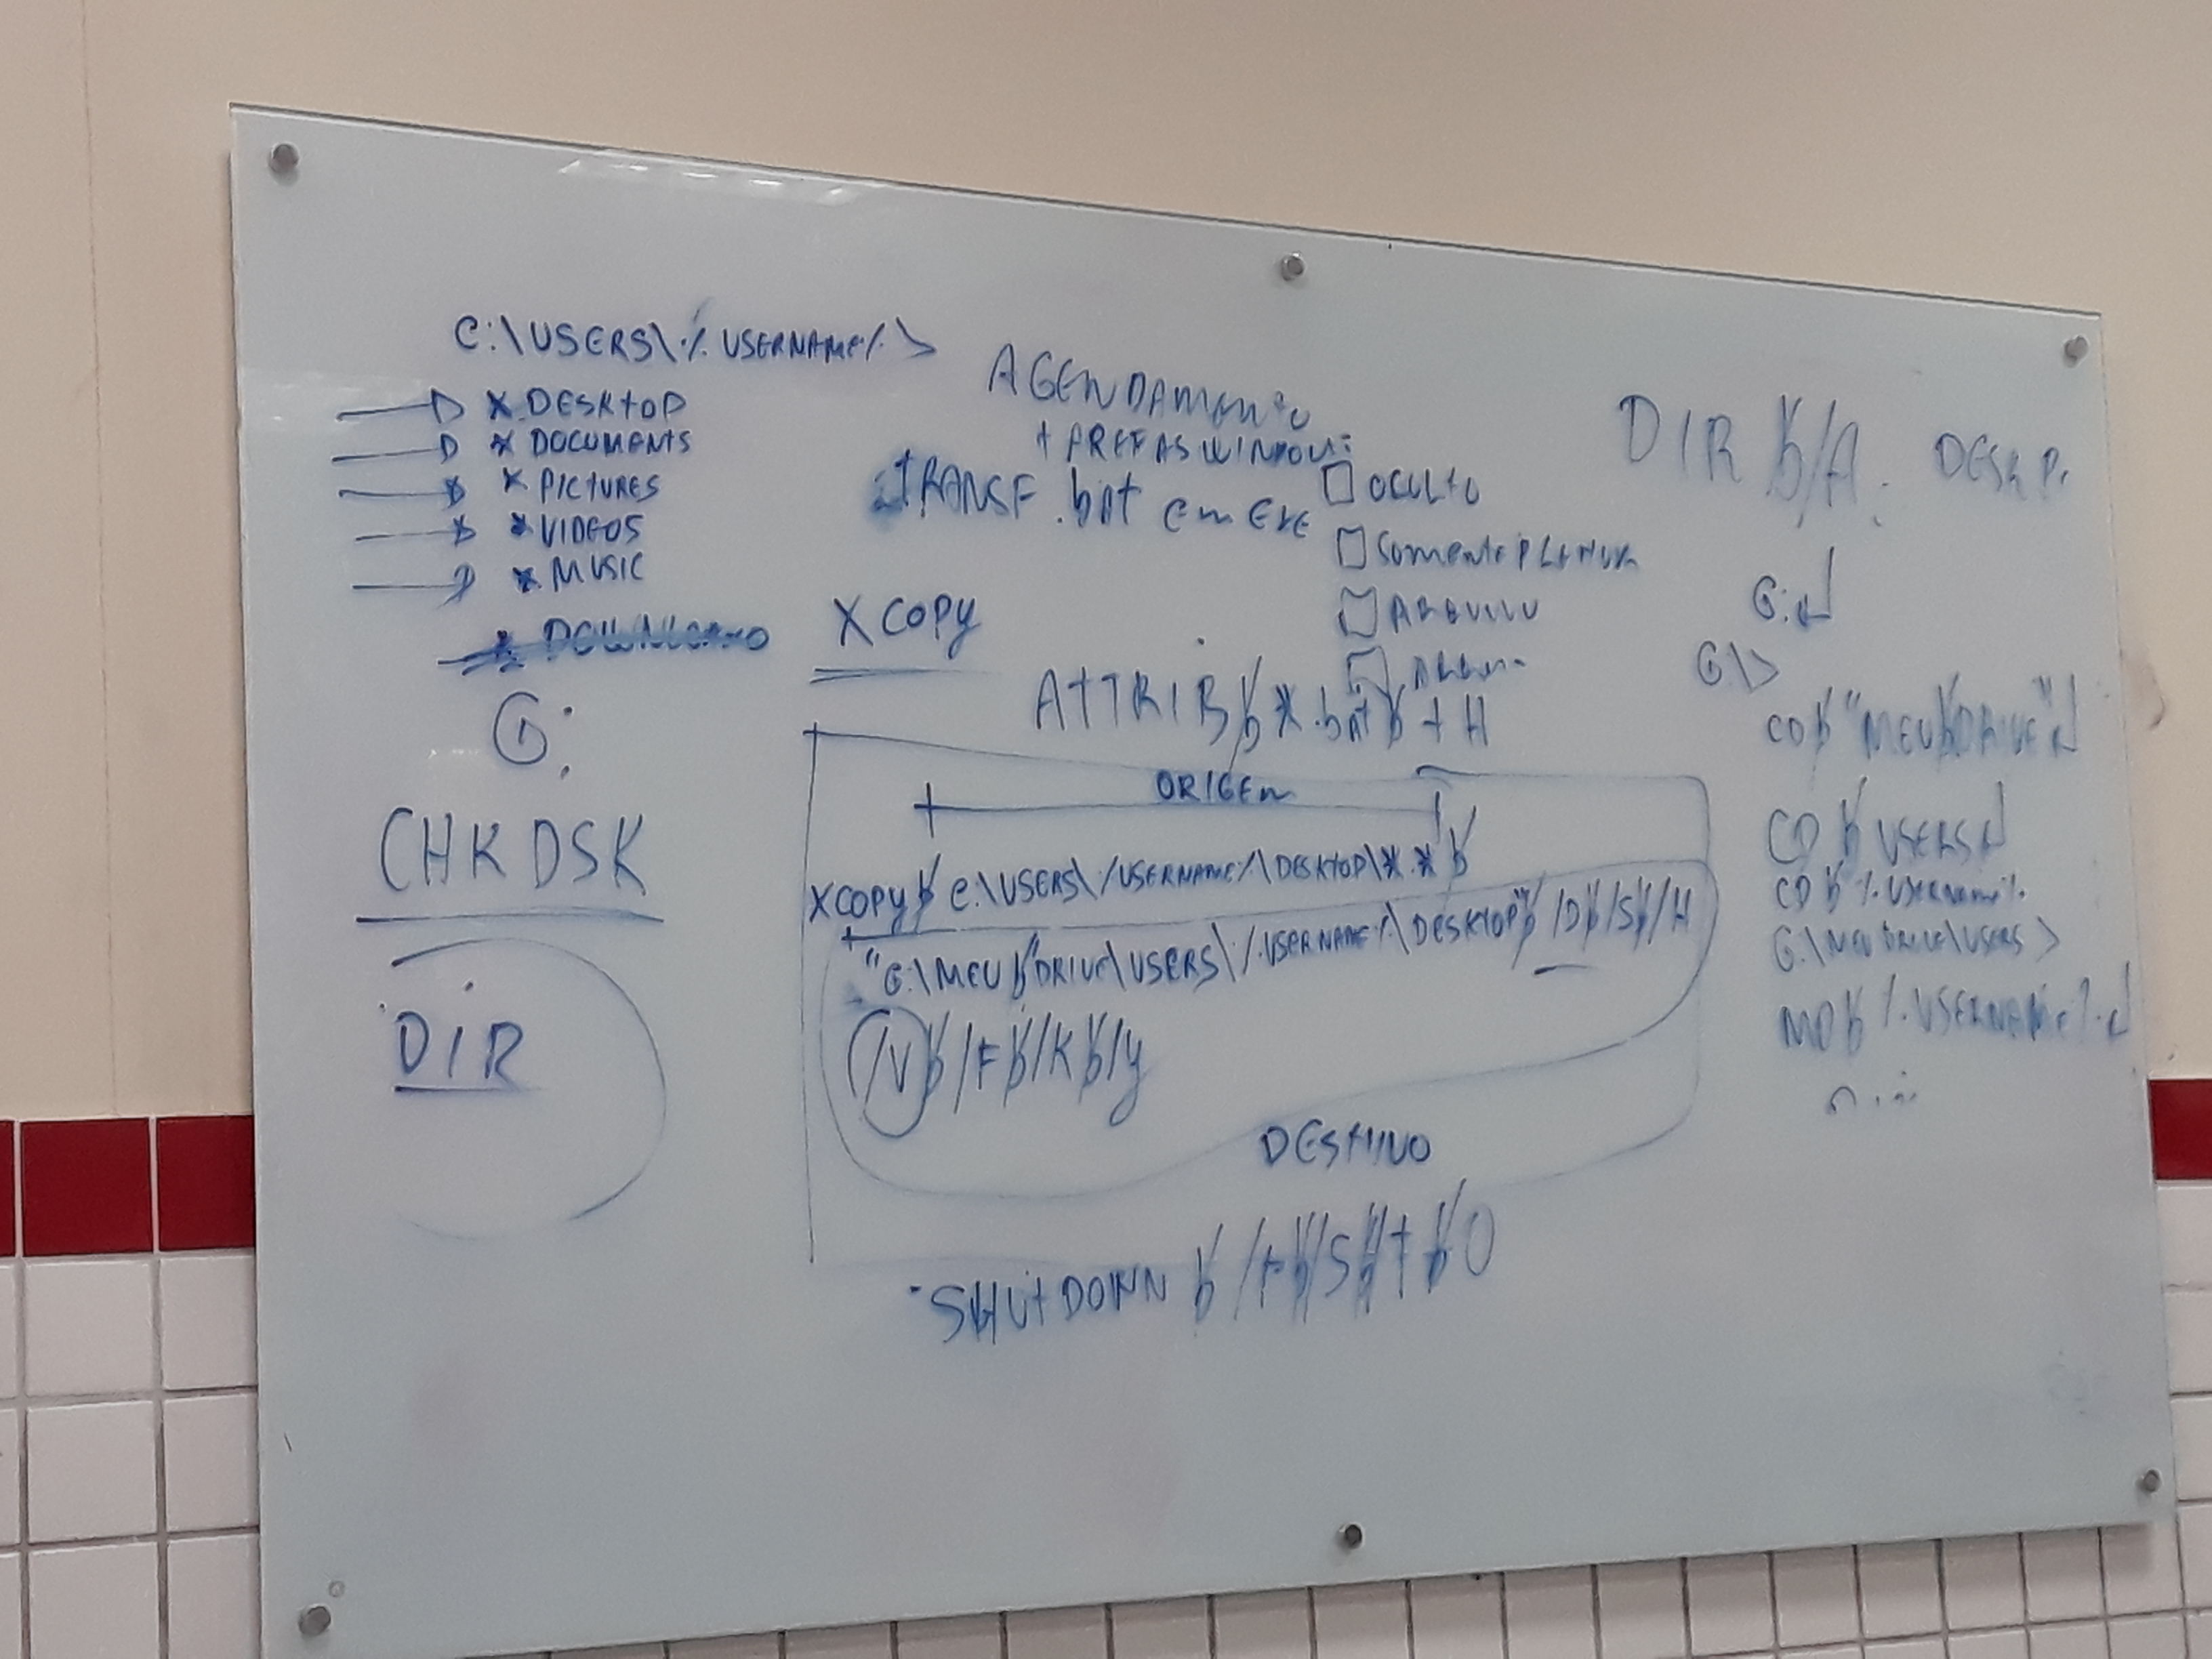 C:\USERS\%USERNAME%>
* DESKTOP
* DOCUMENTS
* PICTURES
* VIDEOS
* MUSIC
* DOWNLOAD
G:
CHKDSK
DIR
AGENDAMENTO
TRANSF .bat em EXE
XCOPY
OCULTO
SOMENTE P LEITURA
ARQUIVO
ATTRIB ƀ *.bat ƀ +H
ORIGEM
XCOPY ƀ C:\USERS\%USERNAME%\DESKTOP\*.* ƀ
"G:\MEU ƀ DRIVE\USERS\%USERNAME%\DESKTOP" ƀ /D ƀ /S ƀ /H
/V ƀ /F ƀ /K ƀ /y
DESTINO
SHUTDOWN ƀ /F ƀ /S ƀ /T ƀ 0
DIR ƀ /A
G: ↲
G:\>
CD ƀ "MEU ƀ DRIVE" ↲
CD ƀ USERS ↲
CD ƀ %USERNAME%
G:\MEU DRIVE\USERS>
MD ƀ %USERNAME% ↲